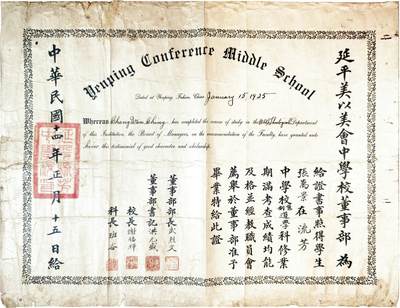 Yenping Conference Middle School
Dated at Yenping Fukien China January 15, 1925
Whereas has completed the course of study in the Department
of this Institution, the Board of Managers, on the recommendation of the Faculty have granted unto
him this testimonial of good character and scholarship.
延平美以美會中學校董事部 為
給證書事照得學生
張萬景在 流芳
中學校 道學科修業
期滿考查成績均能
及格並經教職員會
薦舉於董事部准予
畢業特給此證
董事部部長
董事部書記洪
校長謝
科長
中華民國十四年正月十五日給